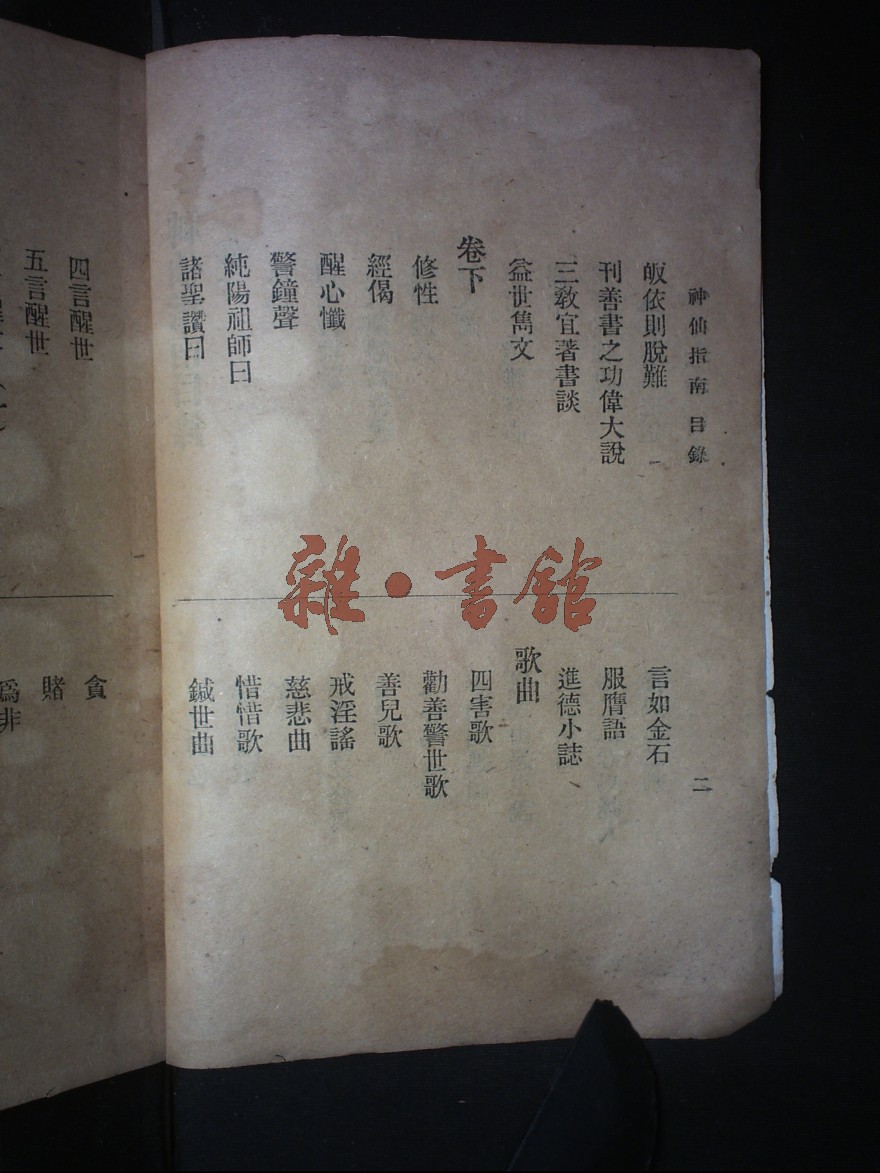 神仙指南 目錄
二
皈依則脫難
刊善書之功偉大說
三教宜著書談
益世雋文
卷下
修性
經偈
醒心懺
警鐘聲
純陽祖師曰
諸聖讚曰
言如金石
服膺語
進德小誌
歌曲
四害歌
勸善警世歌
善兒歌
戒淫謠
慈悲曲
惜惜歌
鍼世曲
四言醒世
五言醒世
貪
賭
為非
雜·書館